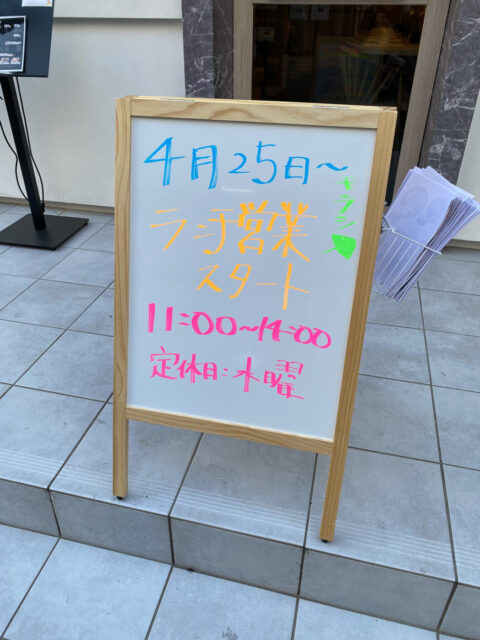 4月25日～
ランチ営業
スタート
11:00～14:00
定休日：水曜